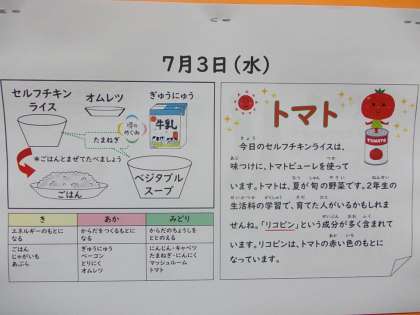 7月3日(水)
セルフチキン
ライス
オムレツ
ぎゅうにゅう
牛乳
たまねぎ
※ごはんとまぜてたべましょう
ごはん
ベジタブル
スープ
き
あか
みどり
エネルギーのもとに
なる
からだをつくるもとに
なる
からだのちょうしを
ととのえる
ごはん
じゃがいも
あぶら
ぎゅうにゅう
ベーコン
とりにく
オムレツ
にんじん・キャベツ
たまねぎ・にんにく
マッシュルーム
トマト
トマト
TOMATO
今日のセルフチキンライスは、
味つけに、トマトピューレを使って
います。トマトは、夏が旬の野菜です。2年生の
生活科の学習で、育てた人がいるかもしれま
せんね。「リコピン」という成分が多く含まれて
います。リコピンは、トマトの赤い色のもとに
なっています。